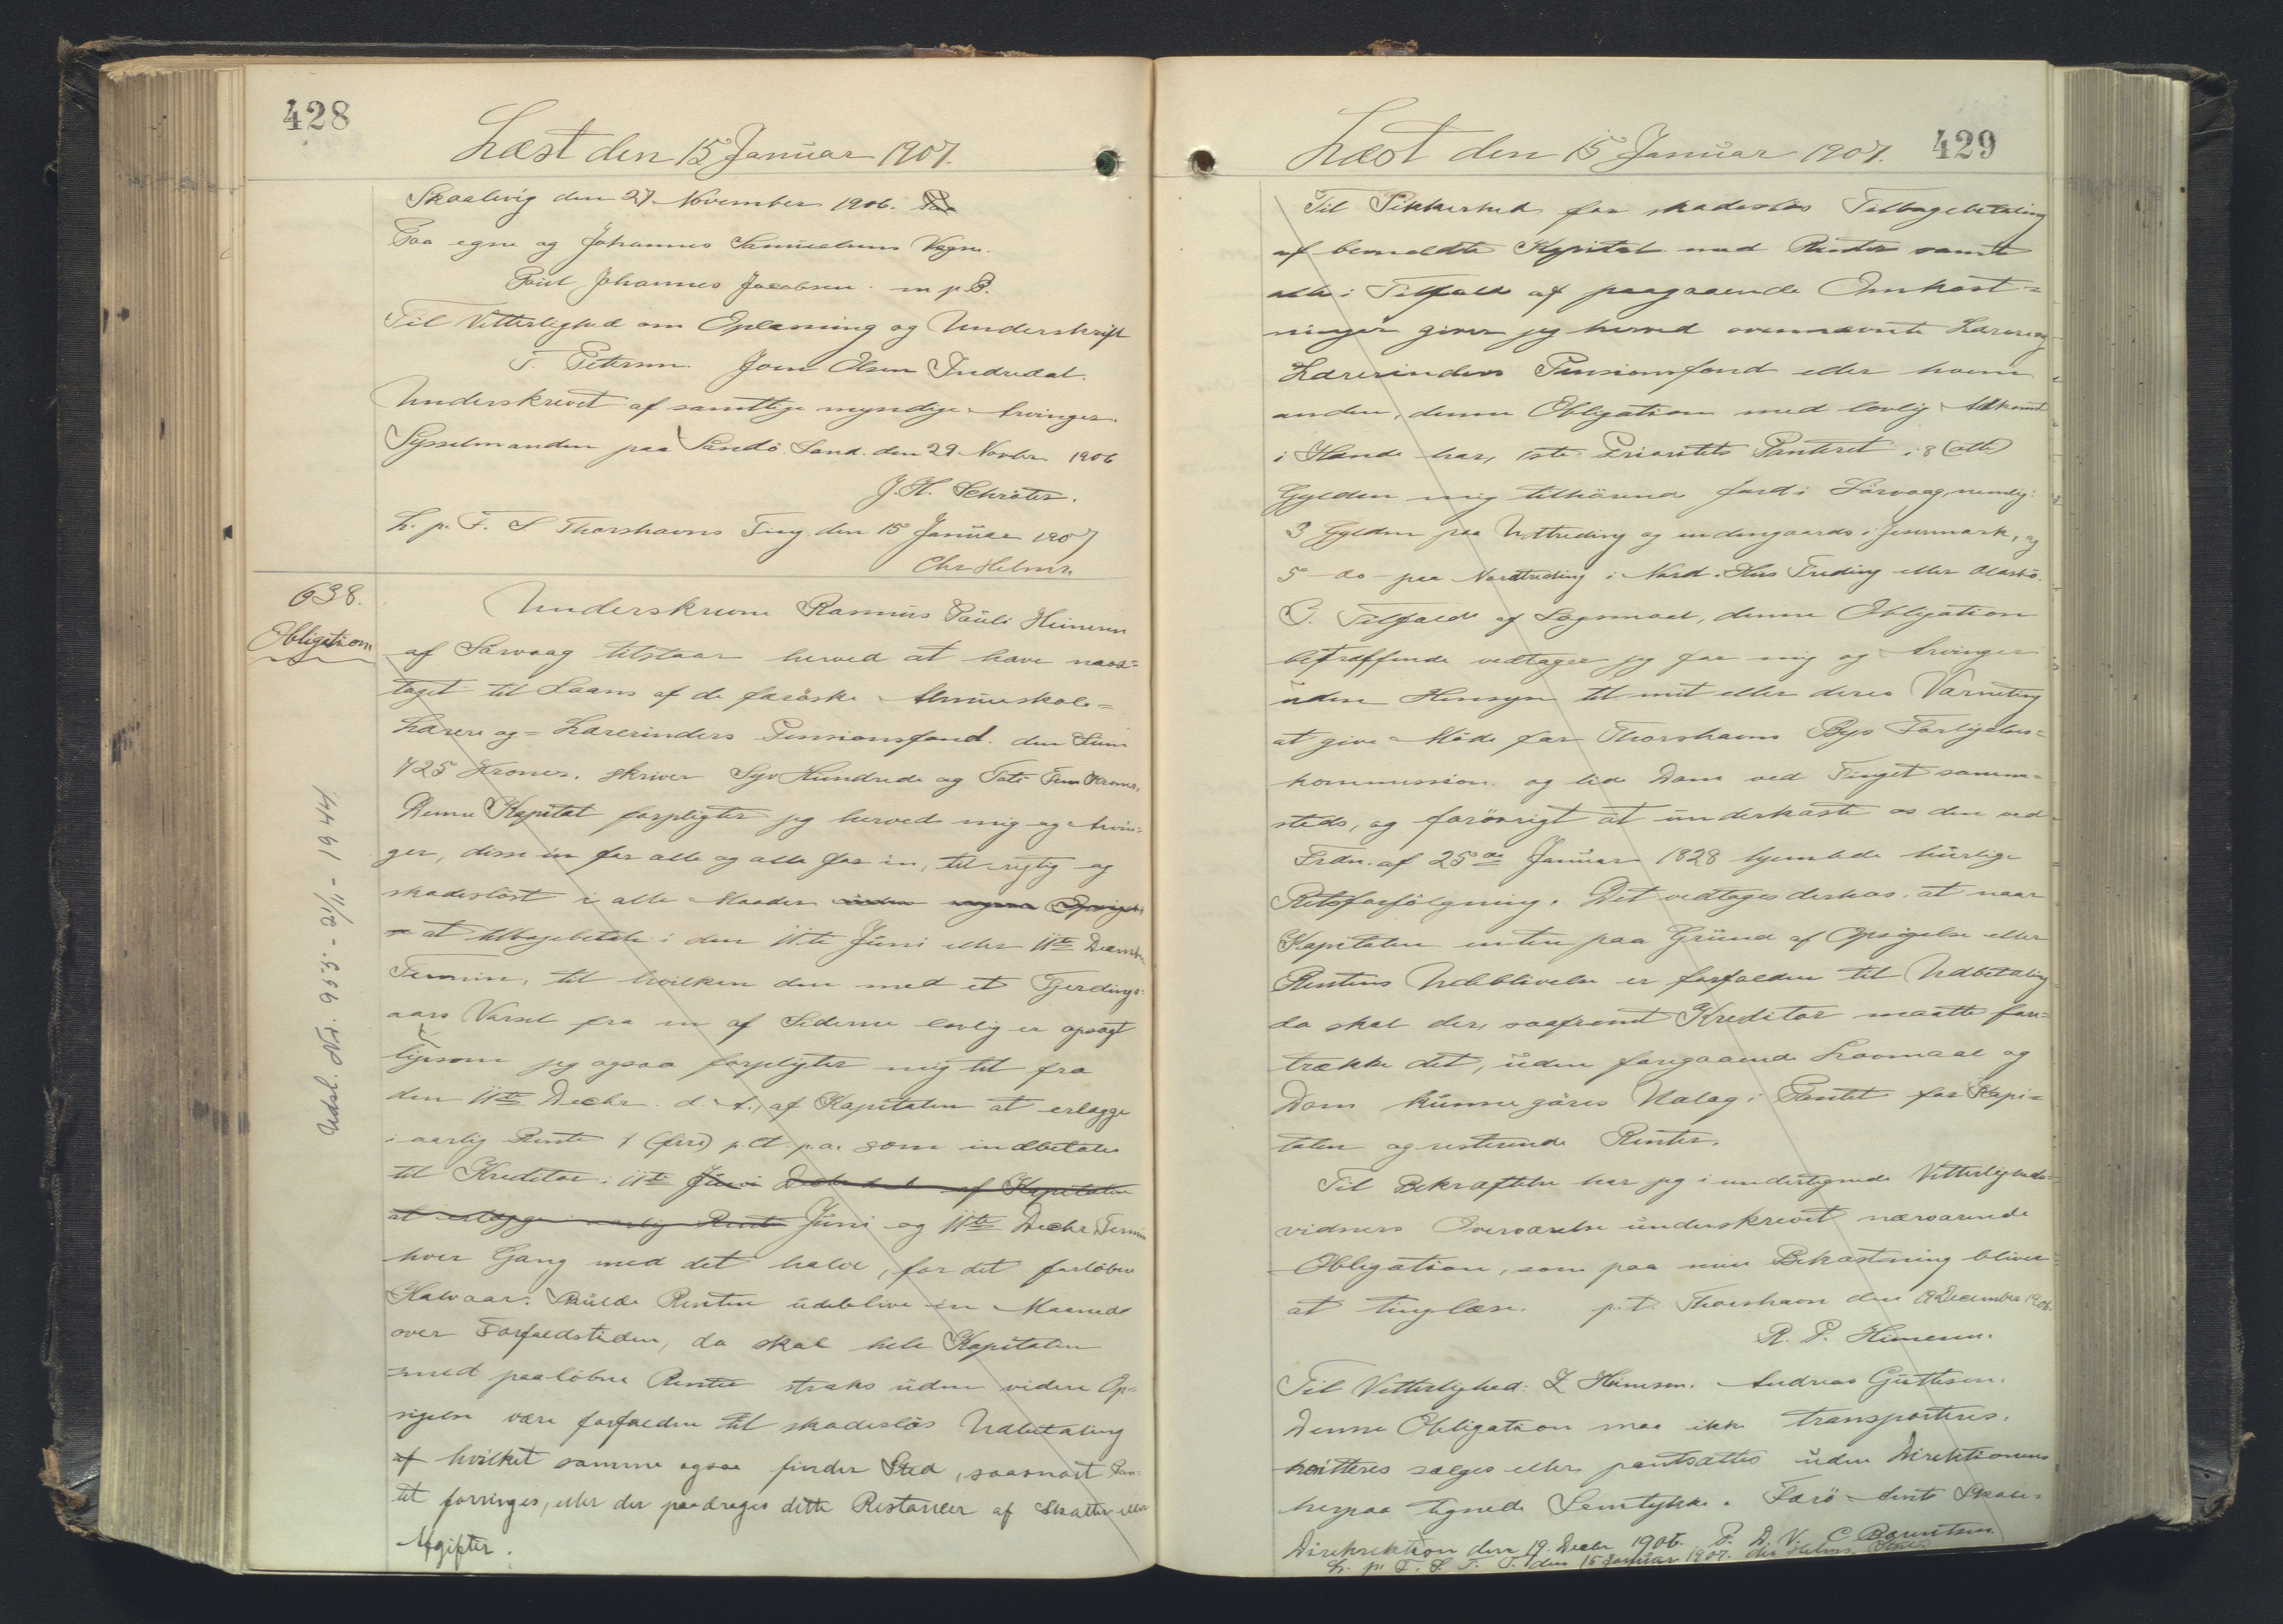 428
Læst den 15 Januar 1907.
Skaalevig den 27 November 1906.
Paa egne og Johannes Samuelsens Vegne.
Poul Johannes Jacobsen m p P.
Til Vitterlighed om Oplæsning og Underskrift
T. Petersen. Joen Olsen Indredal.
Underskrevet af samtlige myndige Arvinger.
Sysselmanden paa Sandö. Sand. den 29 Novbr. 1906
J. H. Schröter.
L. p. F. S Thorshavns Ting den 15 Januar 1907
Chr Helms
638.
Obligation
Underskrevne Rasmus Pauli Heinesen
af Sörvaag tilstaar herved at have mod=
taget til Laans af de færöske Almueskole=
Lærere og = Lærerinders Pensionsfond. den Sum
725 Kroner. skriver Syv Hundrede og Tots Fem Kroner.
Denne Kapital forpligter jeg herved mig og Arvin=
ger, disse en for alle og alle for en, til rigtig og
skadeslöst i alle Maader
at tilbagebetale i den 11te Juni eller 11te Decembr
Termin, til hvilken den med et Fjerdings=
aars Varsel fra en af Siderne lovlig er opsagt
ligesom jeg ogsaa forpligter mig til fra
den 11te Decbr. d. A., af Kapitalen at erlægge
i aarlig Rente 4 (fire) p. Ct p. a. som indbetales
til Kreditor i 11te Juni Decbr af Kapitalen
at erlægge i aarlig Rente Juni og 11te Decbr Termin
hver Gang med det halve, for det forlöbne
Halvaar. Skulde Renten udeblive en Maaned
over Forfaldstiden, da skal hele Kapitalen
med paalöbne Renter straks uden videre Op=
sigelse være forfalden til skadeslös Udbetaling
af hvilket samme ogsaa finder Sted, saasnart Pan=
tet forringes, eller der paadrages dette Restancer af Skatter eller
Afgifter.
Udsl. Nr. 953 - 21/11 - 1944
429
Læst den 15 Januar 1907.
Til Sikkerhed for skadeslös Tilbagebetaling
af bemeldte Kapital med Renter samt
alle i Tilfælde af paagaaende Omkost=
ninger giver jeg herved ovennævnte Lærere og
Lærerinders Pensionsfond eller hvem
anden, denne Obligation med lovlig Adkomst
i Hænde har, 1ste Prioritets Panteret i 8 (otte)
Gylden mig tilhörende Jord i Sörvaag, nemlig:
3 Gylden paa Uttreding og indengaards i Jesenmark, og
5 do - paa Nordtreding i Nord. Hus Treding eller Olasbö.
I Tilfælde af Sögsmaal, denne Obligation
betræffende vedtager jeg for mig og Arvinger
uden Hensyn til mit eller deres Værneting
at give Möde for Thorshavns Byes Forligelses=
kommission og lide Dom ved Tinget samme=
steds, og forövrigt at underkaste os den ved
Frdn. af 25de Januar 1828 hjemlede hurtige
Retsforfölgning. Det vedtages derhos. at naar
Kapitalen enten paa Grund af Opsigelse eller
Rentens Udeblivelse er forfalden til Udbetaling
da skal der, saafremt Kreditor maatte fore=
trække det, uden foregaaende Lovmaal og
Dom kunne göres Udlæg i Pantet for Kapi=
talen og resterende Renter.
Til Bekræftelse har jeg i undertegnede Vitterligheds=
vidners Overværelse underskrevet nærværende
Obligation, som paa min Bekostning bliver
at tinglæse. p. t. Thorshavn den 19 December 1906.
R. P. Heinesen.
Til Vitterlighed: Z Heinesen. Andreas Guttesen.
Denne Obligation maa ikke transporteres,
kvitteres sælges eller pantsættes uden Direktionens
herpaa tegnede Samtykke. Færö Amts Skole=
Direkrektion den 19. Decbr 1906. P. D. V. C Bærentsen
L. p. F. S. T. T. den 15 Januar 1907. Chr Helms.